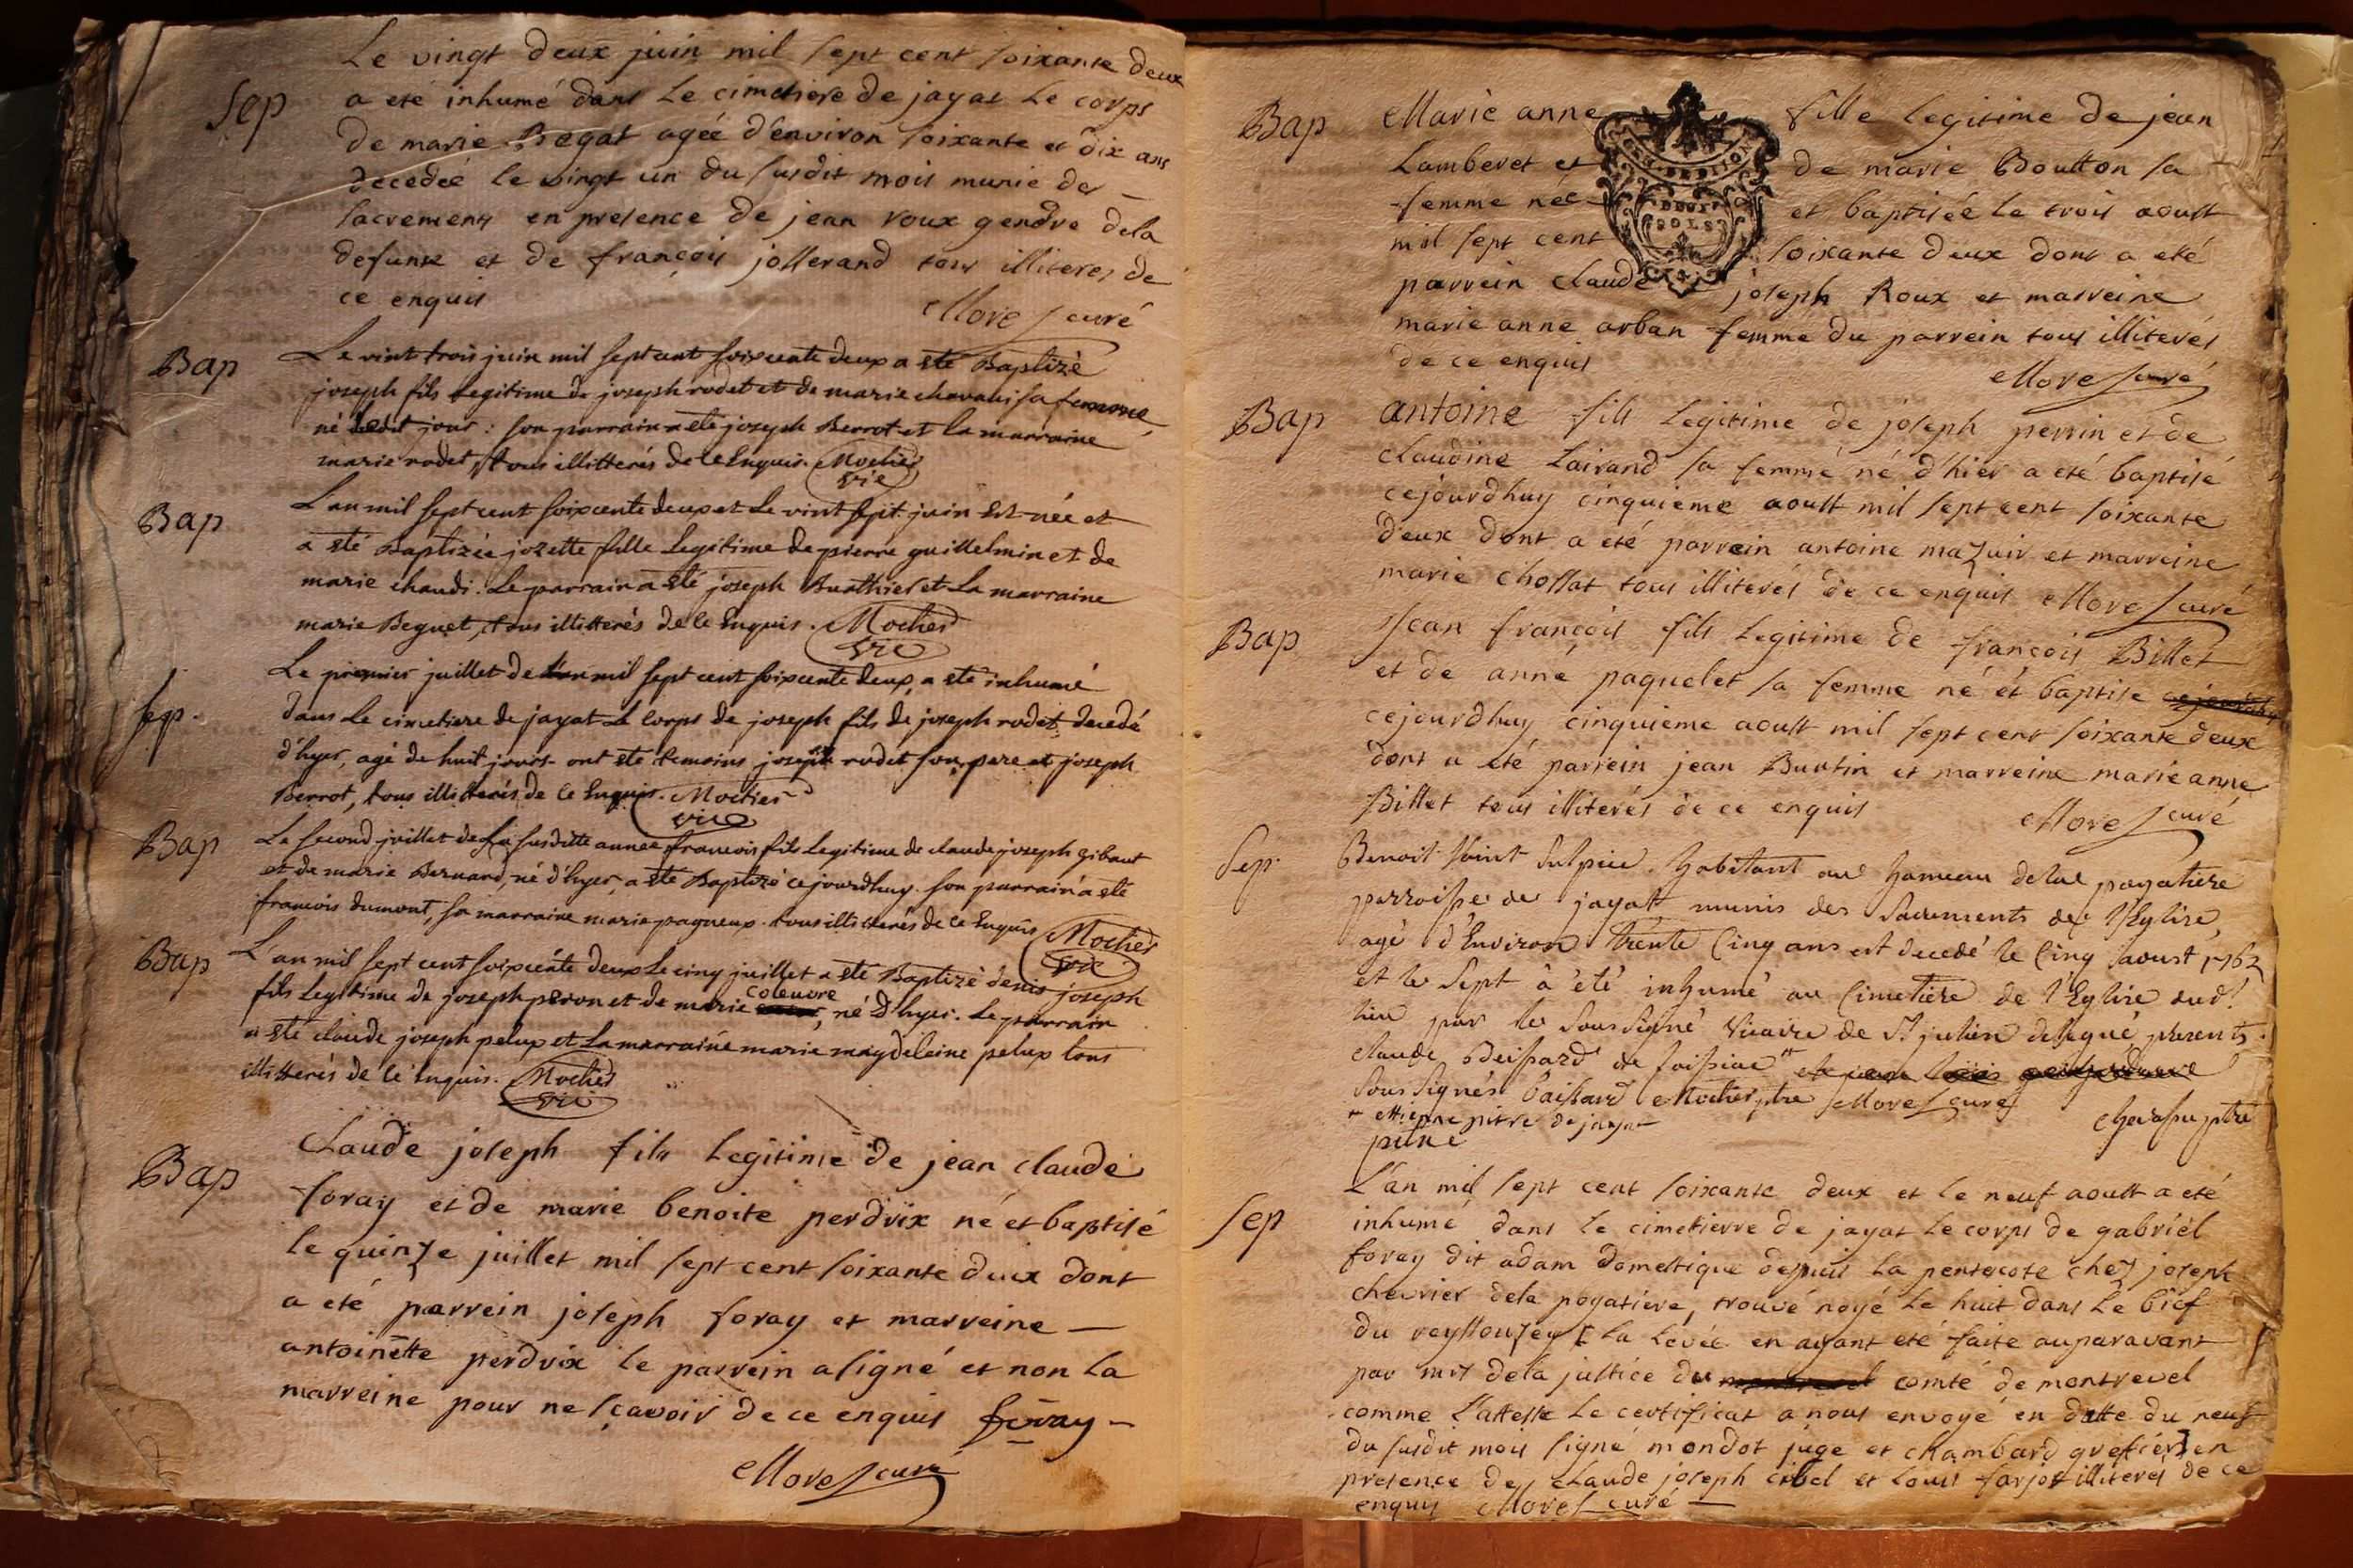 Le vingt deux juin mil sept cent soixante deux
Sep a eté inhumé dans le cimetiere de jayat le corps
de marie Begat agée d'environ soixante et dix ans
decedée le vingt un du susdit mois munie des
sacremens en presence de jean roux gendre dela
defunte et de françois josserand tous illiteres de
ce enquis
More curé
Bap Le vint trois juin mil sept cent soixcente deux a eté Baptizé
joseph fils legitime de joseph rodet et de marie chavani sa femme
né ledit jour : son parrain a eté joseph Berrot et la marraine
marie rodet, tous illitterés de ce Enquis. Mochier
vic
Bap L'an mil sept cent soixcente deux et le vint sept juin Est née et
a eté Baptizée jozette fille legitime de pierre guillelmin et de
marie chaudi. Le parrain a eté joseph Buathier et la marraine
marie Beguet, tous illitterés de ce Enquis. Mochier
vic
sep. Le premier juillet de l'an mil sept cent soixcente deux, a eté inhumé
dans le cimetiere de jayat le corps de joseph fils de joseph rodet decedé
d'hyer, agé de huit jours. ont eté temoins joseph rodet son pere et joseph
Berrot, tous illitterés de ce Enquis. Mochier
vic
Bap Le second juillet de la susditte année francois fils legitime de claude joseph gibaut
et de marie Bernard, né d'hyer, a eté Baptizé cejourdhuy. son parrain a eté
francois dumont, sa marraine marie pagneux. tous illitterés de ce Enquis Mochier
vic
Bap L'an mil sept cent soixcente deux Le cinq juillet a eté Baptizé denis joseph
fils legitime de joseph peron et de marie coleuvre, né d'hyer. Le parrain
a eté claude joseph pelux et la marraine marie magdeleine pelux tous
illitterés de ce Enquis. Mochier
vic
Claude joseph fils legitime de jean claude
Bap foray et de marie benoite perdrix né et baptisé
le quinze juillet mil sept cent soixante deux dont
a eté parrein joseph foray et marreine
antoinette perdrix le parrein a signé et non la
marreine pour ne sçavoir de ce enquis foray
More curé
Bap Marie anne fille legitime de jean
Lamberet et de marie Boutton sa
femme née et baptisée le trois aoust
mil sept cent soixante deux dont a eté
parrein claude joseph Roux et marreine
marie anne arban femme du parrein tous illiterés
de ce enquis
More curé
Bap antoine fils legitime de joseph perrin et de
claudine Lairand sa femme né d'hier a eté baptisé
cejourdhuy cinquieme aoust mil sept cent soixante
deux dont a eté parrein antoine mazuir et marreine
marie chossat tous illiterés de ce enquis More curé
Bap Jean françois fils legitime de françois Billet
et de anne paquelet sa femme né et baptise
cejourdhuy cinquieme aoust mil sept cent soixante deux
dont a eté parrein jean Buatin et marreine marie anne
Billet tous illiterés de ce enquis
More curé
Sep. Benoit Saint Sulpice habitant au hameau dela payatiere
parroisse de jayatt munis des Sacrements de l'Eglise,
agé d'Environ trente cinq ans est decedé le cinq aoust 1762
et le sept à été inhumé au Cimetiere de l'Eglise dud.
lieu par le soussigné vicaire de St julien delegué presents
claude Beissard de foissiac
sous signés baissard Mochier ptre More curé
ettienne pitre de jayat
pitre
L'an mil sept cent soixante deux et le neuf aoust a eté
Sep inhumé dans le cimetierre de jayat le corps de gabriel
foray dit adam domestique depuis la pentecote chez joseph
chevrier dela poyatiere, trouvé noyé le huit dans le bief
du reyssouzey [la levée en ayant eté faite auparavant
par mrs dela justice du comté de montrevel
comme l'atteste le certificat a nous envoyé en datte du neuf
du susdit mois signé mondot juge et chambard grefier] en
presence de claude joseph cibel et louis farjot illiterés de ce
enquis More curé